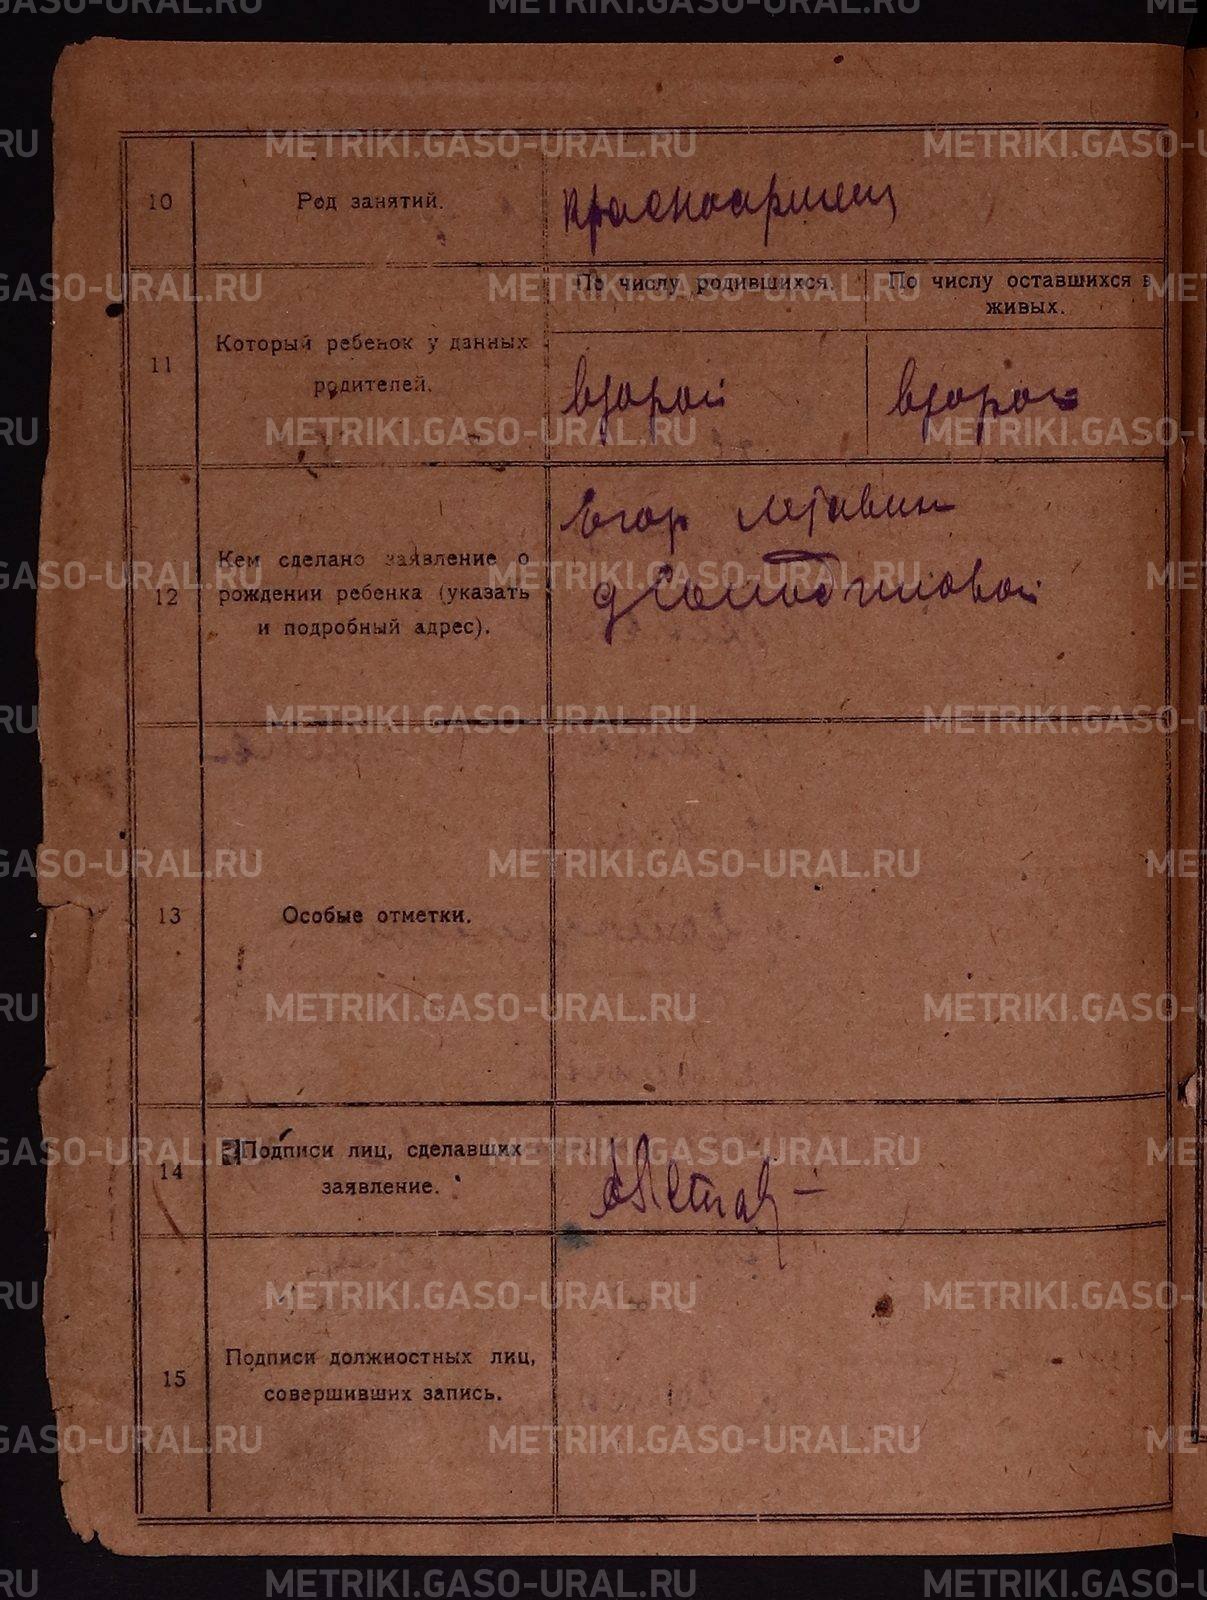 10
Род занятий.
красноармеец
11
Который ребенок у данных
родителей.
По числу родившихся.
По числу оставшихся в
живых.
второй
второй
12
Кем сделано заявление о
рождении ребенка (указать
и подробный адрес).
Егор Летавин
13
Особые отметки.
14
Подписи лиц, сделавших
заявление.
15
Подписи должностных лиц,
совершивших запись.
METRIKI.GASO-URAL.RU